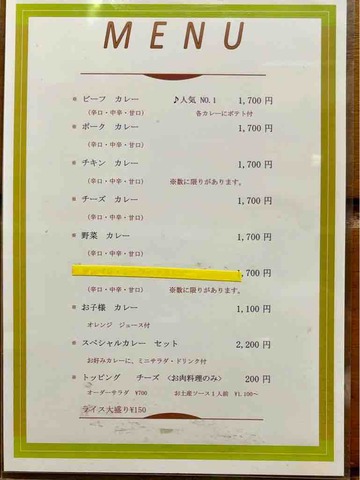 MENU
* ビーフ カレー ♪人気 NO.1 1,700 円
(辛口・中辛・甘口) 各カレーにポテト付
* ポーク カレー 1,700 円
(辛口・中辛・甘口)
* チキン カレー 1,700 円
(辛口・中辛・甘口) ※数に限りがあります。
* チーズ カレー 1,700 円
(辛口・中辛・甘口)
* 野菜 カレー 1,700 円
(辛口・中辛・甘口)
1,700 円
(辛口・中辛・甘口) ※数に限りがあります。
* お子様 カレー 1,100 円
オレンジ ジュース付
* スペシャルカレー セット 2,200 円
お好みカレーに、ミニサラダ・ドリンク付
* トッピング チーズ <お肉料理のみ> 200 円
オーダーサラダ ¥700 お土産ソース1人前 ¥1,100~
ライス大盛り¥150